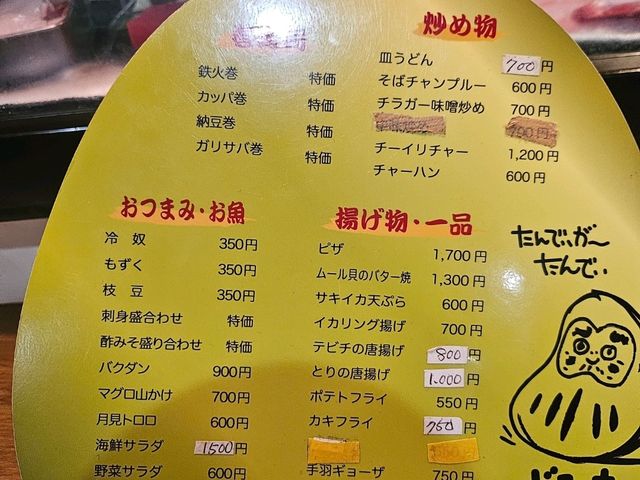 炒め物
鉄火巻 特価
カッパ巻 特価
納豆巻 特価
ガリサバ巻 特価
皿うどん 700円
そばチャンプルー 600円
チラガー味噌炒め 700円
700円
チーイリチャー 1,200円
チャーハン 600円
おつまみ・お魚
冷奴 350円
もずく 350円
枝豆 350円
刺身盛合わせ 特価
酢みそ盛り合わせ 特価
バクダン 900円
マグロ山かけ 700円
月見トロロ 600円
海鮮サラダ 1500円
野菜サラダ 600円
揚げ物・一品
ピザ 1,700円
ムール貝のバター焼 1,300円
サキイカ天ぷら 600円
イカリング揚げ 700円
テビチの唐揚げ 800円
とりの唐揚げ 1,000円
ポテトフライ 550円
カキフライ 750円
手羽ギョーザ 750円
たんでぃが〜
たんでぃ